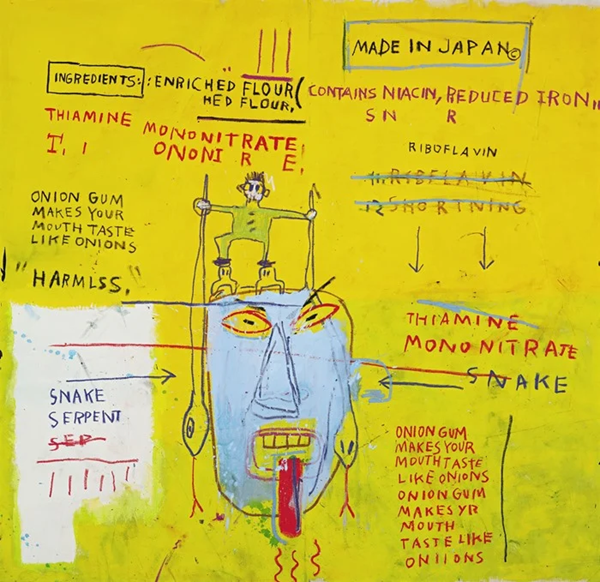 MADE IN JAPAN©
INGREDIENTS: : ENRICHED FLOUR (
HED FLOUR,
CONTAINS NIACIN, REDUCED IRON,
S N R
THIAMINE MONONITRATE
T. I ONONI R E.
RIBOFLAVIN
11. RIBFLAVIN
12 SHORTNING
ONION GUM
MAKES YOUR
MOUTH TASTE
LIKE ONIONS
"HARMLSS."
THIAMINE
MONONITRATE
SNAKE
SNAKE
SERPENT
SEP
ONION GUM
MAKES YOUR
MOUTH TASTE
LIKE ONIONS
ONION GUM
MAKES YR
MOUTH
TASTE LIKE
ONIIONS